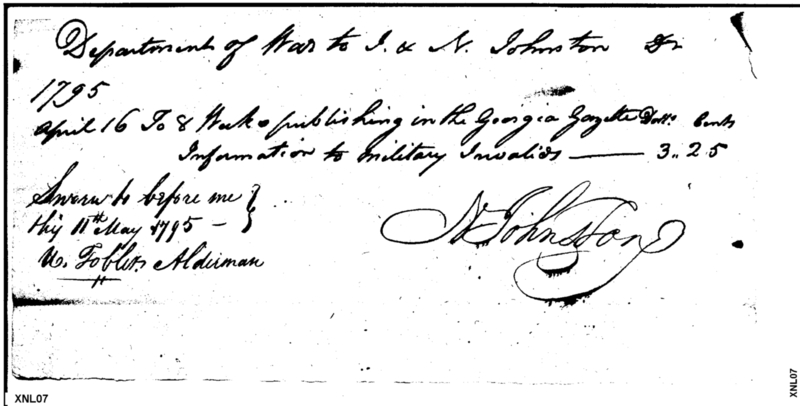 Department of War to J. & N. Johnston Dr
1795
April 16 To 8 Weeks publishing in the Georgia Gazette Doll.s Cents
Information to military Invalids —— 3.. 25
Sworn to before me }
this 11th May 1795 — }
U. Tobler Alderman
N Johnston
XNL07
XNL07